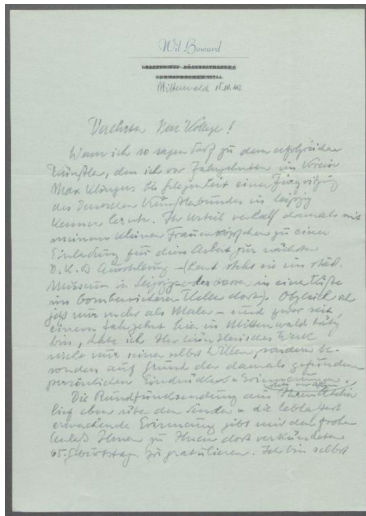 Wil Howard
Mittenwald
Verehrter Herr Kollege!
Wenn ich so sagen darf zu dem erfolgreichen
Künstler, den ich vor Jahrzehnten im Verein
Max Klingers bei Gelegenheit einer Jurysitzung
des Deutschen Künstlerbundes in Leipzig
kennen lernte. Ihr Urteil verhalf damals mir
meinem kleinen Frauenköpfchen zu einer
Einladung für diese Arbeit zur nächsten
D.K.B Ausstellung – (heut steht sie im städt.
Museum in Leipzig in einer Kiste
im bombensicheren Keller dort). Obgleich ich
jetzt nur mehr als Maler – und zwar seit
einem Jahrzehnt hier in Mittenwald tätig
bin, habe ich Ihr künstlerisches Werk
nicht nur seiner selbst willen, sondern be-
sonders auf Grund der damals gefundenen
persönlichen Eindrücke
Die Rundfunksendung aus
lief eben über den Sender – die lebhaft
erwachende Erinnerung gibt mir den frohen
Anlaß Ihnen zu Ihrem dort verkündeten
65. Geburtstag zu gratulieren. Ich bin selbst